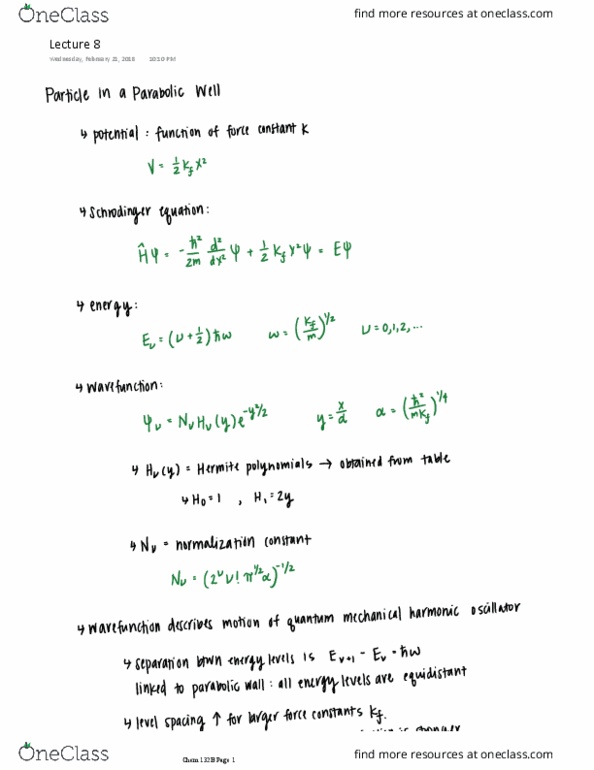 OneClass find more resources at oneclass.com
Lecture 8
Wednesday, February 21, 2018 10:10 PM
Particle in a Parabolic Well
↳ potential : function of force constant k
V = ½ k_f x²
↳ Schrodinger equation:
Ĥψ = -ħ²/2m d²/dx² ψ + ½ k_f x²ψ = Eψ
↳ energy:
E_ν = (ν + ½) ħω ω = (k_f/m)^1/2 ν = 0,1,2, ...
↳ wavefunction:
ψ_ν = N_ν H_ν (y) e^-y²/2 y = x/α α = (ħ²/mk_f)^1/4
↳ H_ν (y) = Hermite polynomials → obtained from table
↳ H₀ = 1 , H₁ = 2y
↳ N_ν = normalization constant
N_ν = (2^ν ν! π^1/2 α)^-1/2
↳ wavefunction describes motion of quantum mechanical harmonic oscillator
↳ separation btwn energy levels is E_ν+1 - E_ν = ħω
linked to parabolic wall : all energy levels are equidistant
↳ level spacing ↑ for larger force constants k_f.
OneClass Chem 132B Page 1 find more resources at oneclass.com